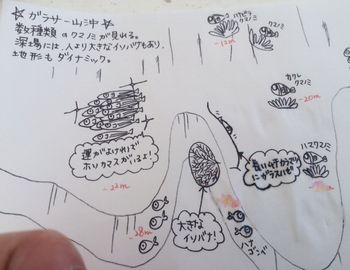 ☆ガラサー山沖☆
数種類のクマノミが見れる。
深場には、人より大きなイソバナもあり、
地形もダイナミック。
ハナビラ
クマノミ
クマノミ
-12m
カクレ
クマノミ
-20m
運がよければ
ホソカマスがいるよ!
ハマクマノミ
-22m
大きな
イソバナ!
-28m
ハナ
ゴンベ